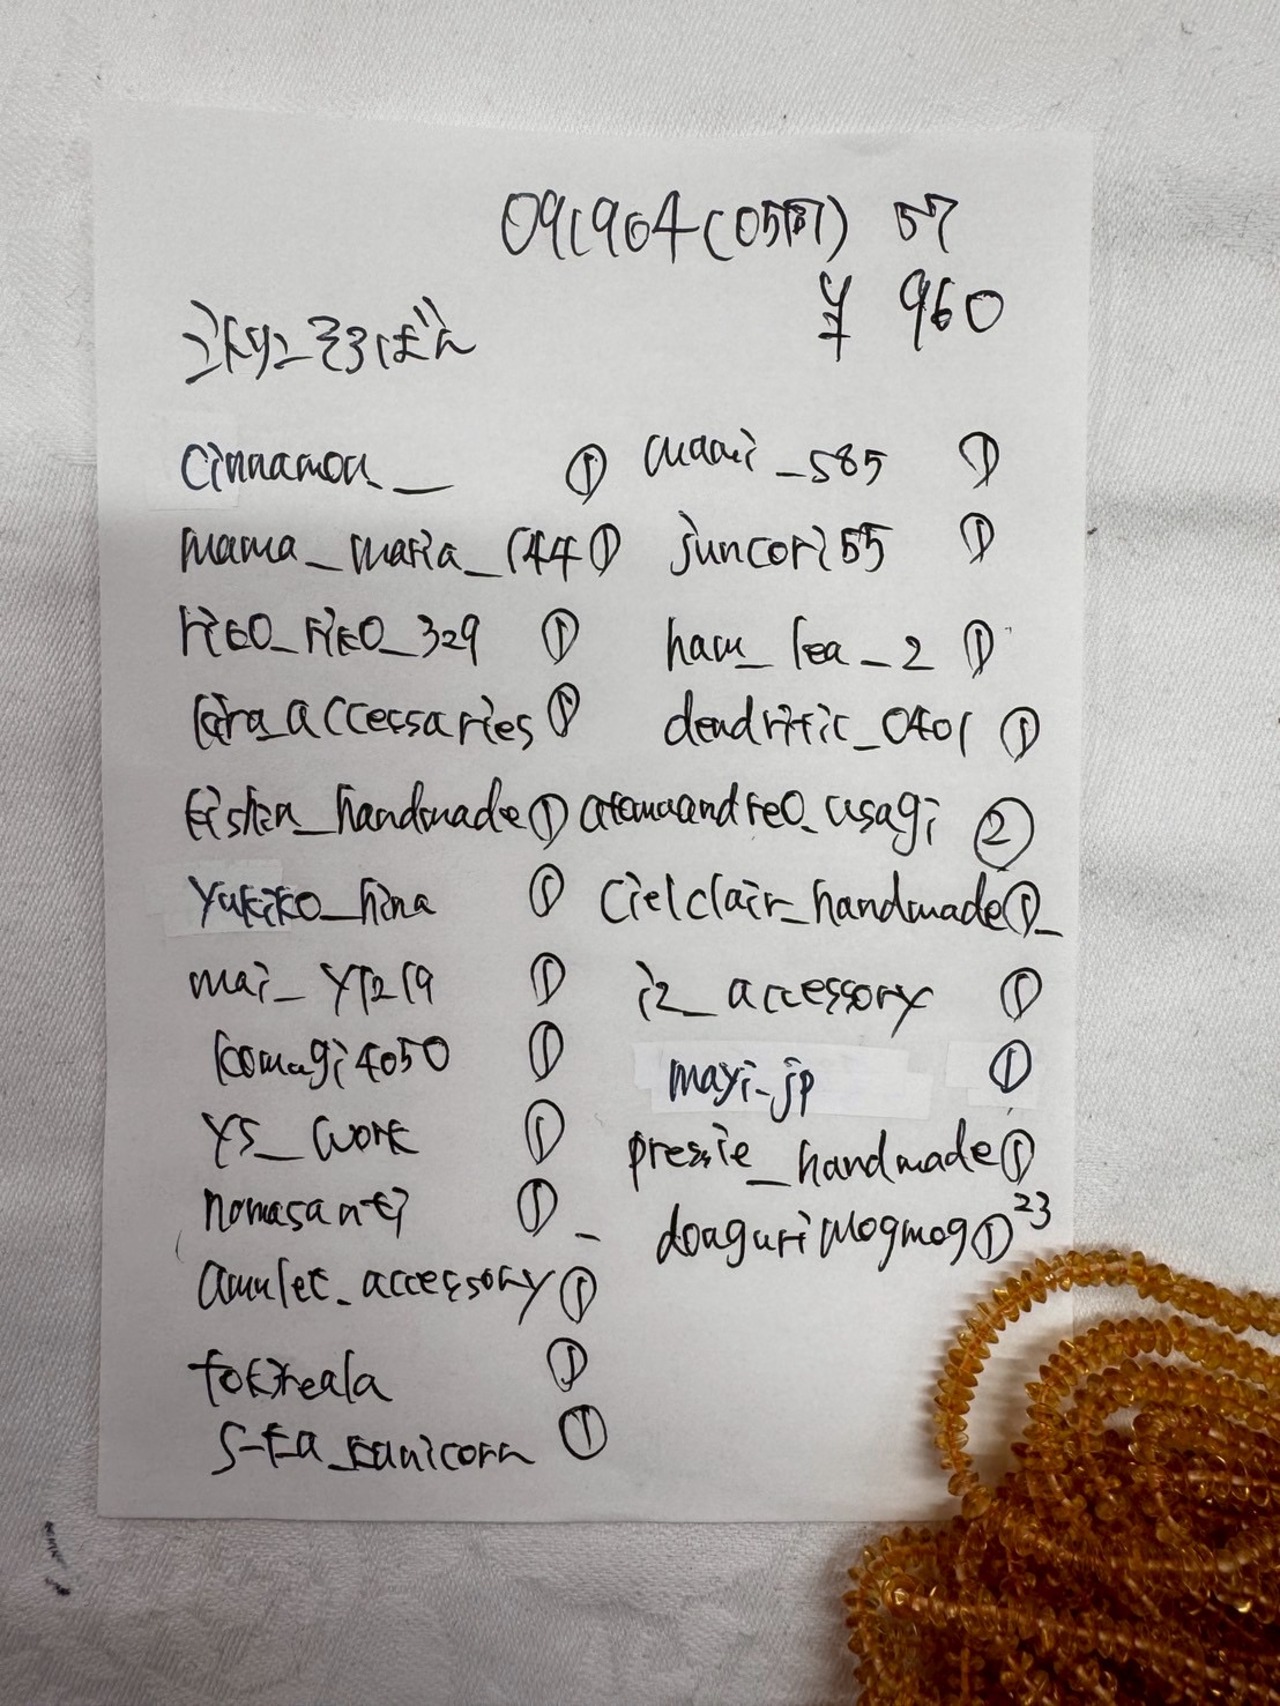 091904(05閉) 57
¥ 960
こはくそろばん
cinnamon__ ①
mama_maria_144 ①
riko_riko_329 ①
kira_accessaries ①
_handmade ①
yukiko_hina ①
mai_y1219 ①
komagi4050 ①
ys_work ①
nomasanti ①
amulet_accessory ①
tokireala ①
s-ka_kunicorn ①
mami_585 ①
juncori55 ①
ham_lea_2 ①
dendritic_0401 ①
_usagi ②
cielclair_handmade ①_
iz_accessory ①
mayi_jp ①
pressie_handmade ①
dongurimogmog ① 23